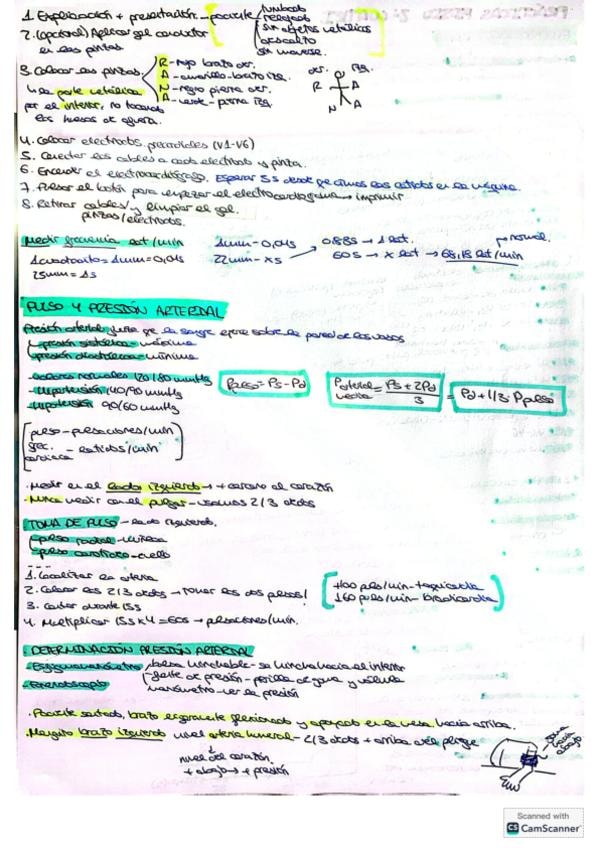 1. Explicación + presentación - paciente tumbado
relajado
sin objetos metálicos
descalzo
sin moverse.
2. (opcional) Aplicar gel conductor
en las pinzas.
3. Colocar las pinzas
R - rojo brazo der.
A - amarillo - brazo izq.
N - negro pierna der.
A - verde - pierna izq.
der. izq.
R A
N A
↳ la parte metálica
por el interior, no tocando
los huesos de
4. Colocar electrodos precordiales (V1-V6)
5. Conectar los cables a cada electrodo y pinza.
6. Encender el electrocardiógrafo. Esperar 5s desde que vemos los latidos en la máquina.
7. Pulsar el botón para empezar el electrocardiograma → imprimir
8. Retirar cables y limpiar el gel.
pinzas/electrodos.
Medir frecuencia lat/min
1 cuadradito = 1mm = 0,04s
25mm = 1s
1mm - 0,04s
22mm - x s
0.88s → 1 lat.
60s → x lat → 68,18 lat/min
normal.
PULSO Y PRESIÓN ARTERIAL
Presión arterial: fuerza que la sangre ejerce sobre la pared de los vasos
presión sistólica - máxima
presión diastólica - mínima
- Valores normales 120/80 mmHg
- Hipertensión 140/90 mmHg
- Hipotensión 90/60 mmHg
Ppulso = Ps - Pd
Parterial media = Ps + 2Pd / 3 = Pd + 1/3 · Ppulso
pulso - pulsaciones/min
frec. cardiaca - latidos/min
· Medir en el lado izquierdo → + cercano al corazón
· Nunca medir con el pulgar - usamos 2/3 dedos
TOMA DE PULSO - lado izquierdo.
pulso radial - muñeca
pulso carotídeo - cuello
1. Localizar la arteria
2. Colocar los 2/3 dedos → tomar los dos pulsos!
3. Contar durante 15s
4. Multiplicar 15s x 4 = 60s → pulsaciones/min.
+100 puls/min - taquicardia
↓60 puls/min - bradicardia
· DETERMINACIÓN PRESIÓN ARTERIAL
- Esfigmomanómetro
bolsa hinchable - se hincha hacia el interior
fuente de presión - perilla de goma y válvula
manómetro - ver la presión
- Fonendoscopio
· Paciente sentado, brazo ligeramente flexionado y apoyado en la mesa hacia arriba.
· Manguito brazo izquierdo nivel arteria humeral - 2/3 dedos + arriba del pliegue
nivel del corazón.
+ abajo → + presión
goma
hacia
abajo
Scanned with
CS CamScanner